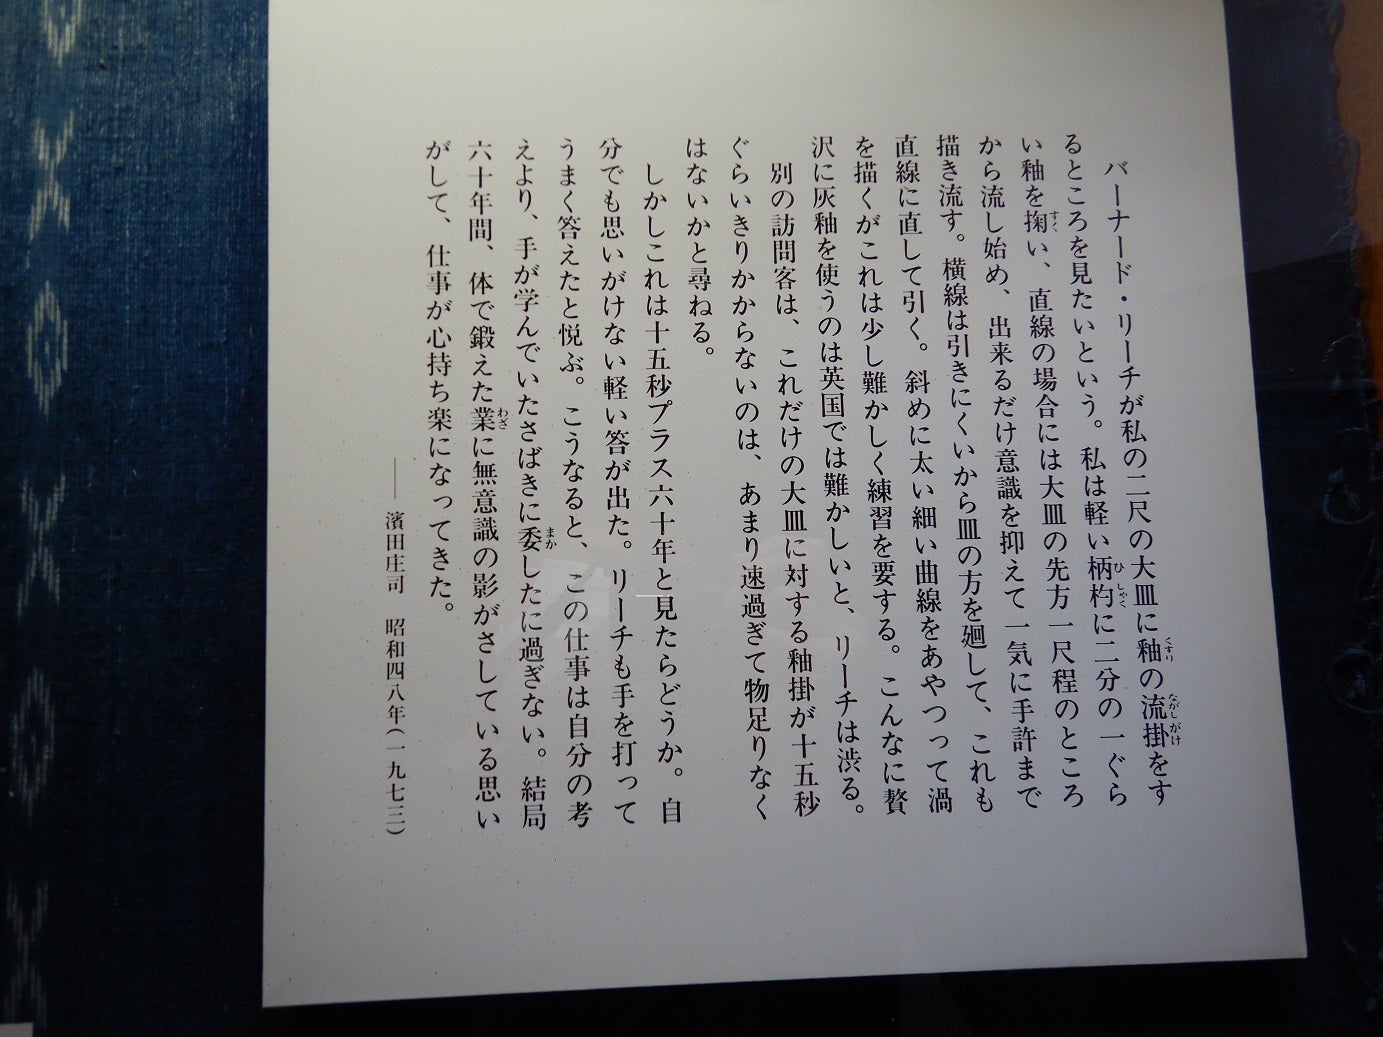 バーナード・リーチが私の二尺の大皿に釉の流掛をす
るところを見たいという。私は軽い柄杓に二分の一ぐら
い釉を掬い、直線の場合には大皿の先方一尺程のところ
から流し始め、出来るだけ意識を抑えて一気に手許まで
描き流す。横線は引きにくいから皿の方を廻して、これも
直線に直して引く。斜めに太い細い曲線をあやつって渦
を描くがこれは少し難かしく練習を要する。こんなに贅
沢に灰釉を使うのは英国では難かしいと、リーチは渋る。
別の訪問客は、これだけの大皿に対する釉掛が十五秒
ぐらいきりかからないのは、あまり速過ぎて物足りなく
はないかと尋ねる。
しかしこれは十五秒プラス六十年と見たらどうか。自
分でも思いがけない軽い答が出た。リーチも手を打って
うまく答えたと悦ぶ。こうなると、この仕事は自分の考
えより、手が学んでいたさばきに委したに過ぎない。結局
六十年間、体で鍛えた業に無意識の影がさしている思い
がして、仕事が心持ち楽になってきた。
――濱田庄司 昭和四八年(一九七三)